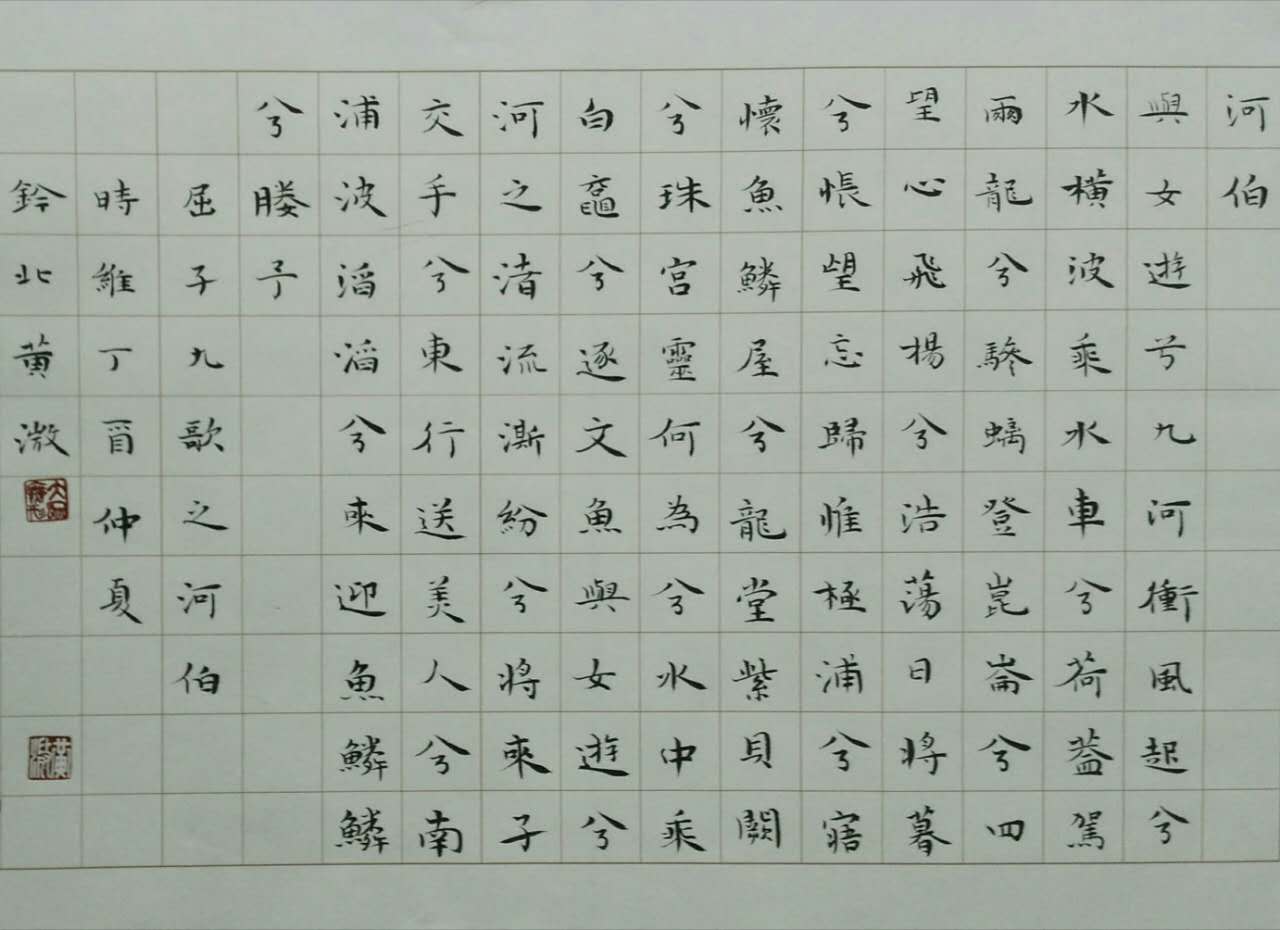 河伯
與女遊兮九河衝風起兮
水橫波乘水車兮荷蓋駕
兩龍兮驂螭登崑崙兮四
望心飛楊兮浩蕩日將暮
兮悵望忘歸惟極浦兮寤
懷魚鱗屋兮龍堂紫貝闕
兮珠宮靈何為兮水中乘
白黿兮逐文魚與女遊兮
河之渚流澌紛兮將來子
交手兮東行送美人兮南
浦波滔滔兮來迎魚鱗鱗
兮媵予
屈子九歌之河伯
時維丁酉仲夏
鈐北黃溦